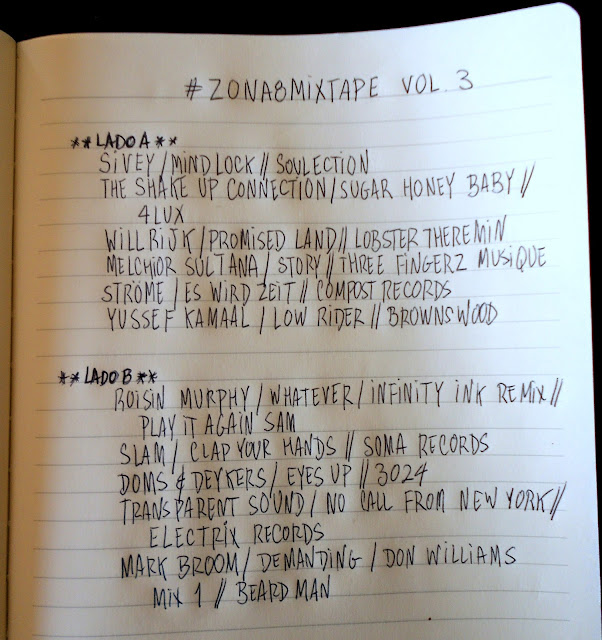 #ZONA8MIXTAPE VOL. 3
**LADO A**
SIVEY/MIND LOCK// SOULECTION
THE SHAKE UP CONNECTION/SUGAR HONEY BABY//
4LUX
WILL RIJK/PROMISED LAND//LOBSTER THEREMIN
MELCHIOR SULTANA/STORY//THREE FINGERZ MUSIQUE
STRÖME/ES WIRD ZEIT//COMPOST RECORDS
YUSSEF KAMAAL/LOW RIDER//BROWNSWOOD
**LADO B**
ROISIN MURPHY/WHATEVER/INFINITY INK REMIX//
PLAY IT AGAIN SAM
SLAM/CLAP YOUR HANDS//SOMA RECORDS
DOMS & DEYKERS/EYES UP//3024
TRANSPARENT SOUND/NO CALL FROM NEW YORK//
ELECTRIX RECORDS
MARK BROOM/DEMANDING/DON WILLIAMS
MIX 1//BEARD MAN